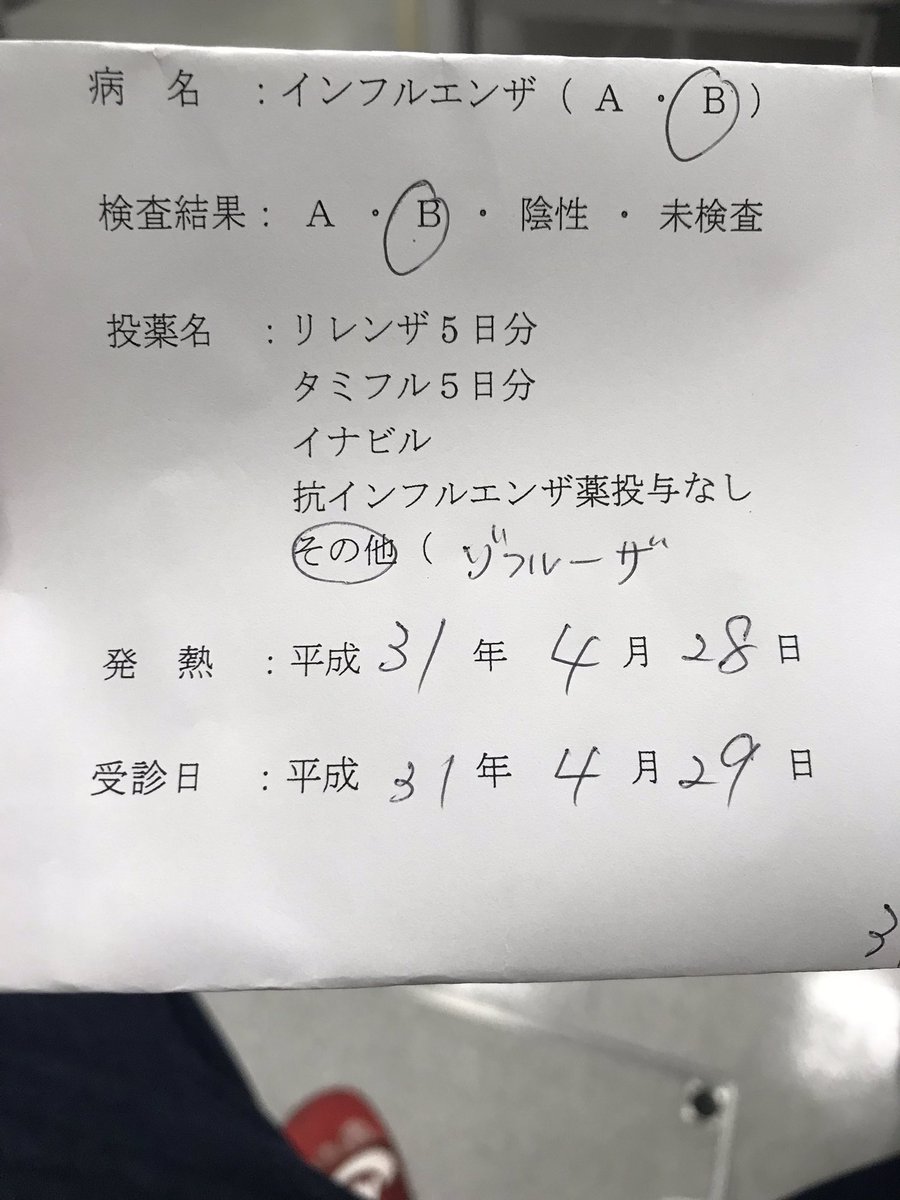 病 名 ：インフルエンザ（ A ・ B ）
検査結果： A ・ B ・ 陰性 ・ 未検査
投薬名 ：リレンザ５日分
タミフル５日分
イナビル
抗インフルエンザ薬投与なし
その他（ ゾフルーザ
発 熱 ：平成 31 年 4 月 28 日
受診日 ：平成 31 年 4 月 29 日